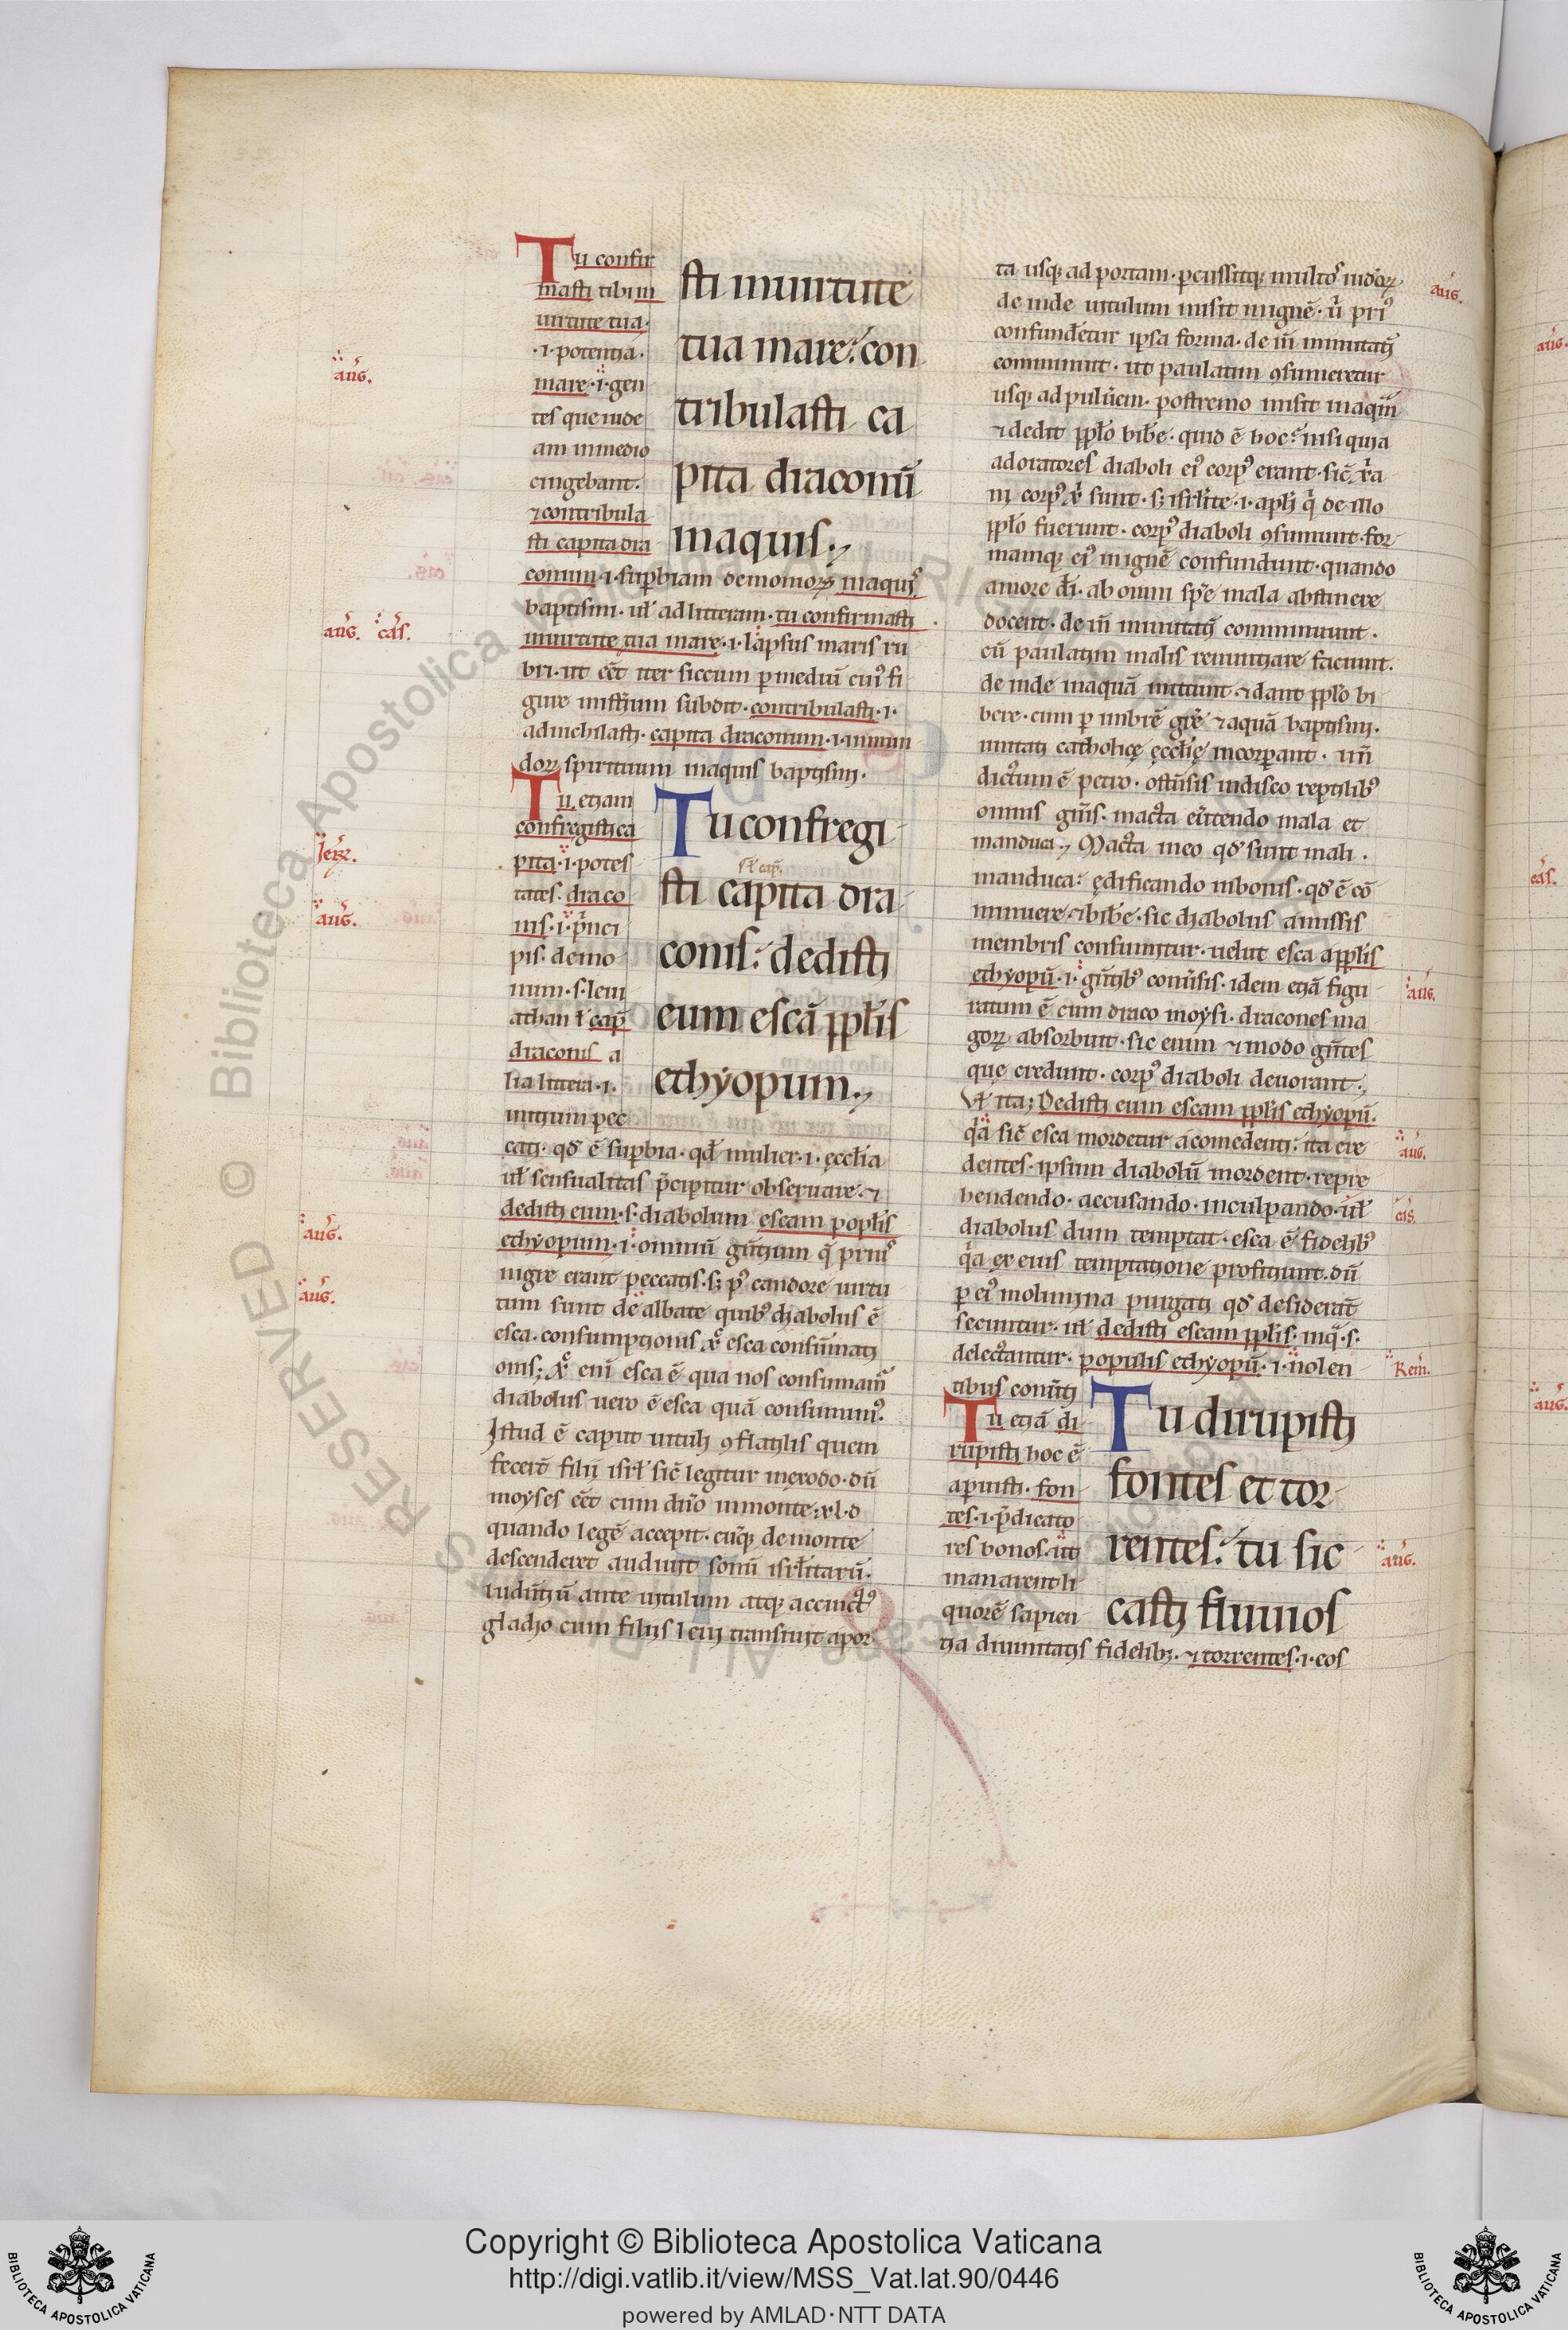 Tu confir
masti tibi in
uirtute tua.
.i. potentia.
mare .i. gen
tes que iude
am in medio
cingebant.
⁊ contribula
sti capita dra
conum .i. supbiam demonioꝝ in aquis
baptismi. ul ad litteram. tu confirmasti
in uirtute tua mare .i. lapsus maris ru
bri. ut eet iter siccum p mediũ cuiꝰ fi
gure misterium subdit. contribulasti .i.
adnichilasti. capita draconum .i. inmun
doꝝ spirituum in aquis baptismi.
sti in uirtute
tua mare: con
tribulasti ca
pita draconũ
in aquis.
Tu etiam
confregisti ca
pita .i. potes
tates. draco
nis .i. p̃nci
pis demo
num .s. leui
athan ł cap̃
draconis a
lia littera .i.
initium pec
cati. qđ ẽ supbia. qđ mulier .i. ęcclia
uł sensualitas p̃cipitur obseruare. ⁊
dedisti eum .s. diabolum escam poplis
ethyopum .i. omniũ gñtium q̃ priuꝰ
nigre erant peccatis. sꝫ pꝰ candore uirtu
tum sunt de albate quibꝰ diabolus ẽ
esca. consumptionis xp̃c esca consũmati
onis; xp̃c eni esca ẽ qua nos consumam̃
diabolus uero ẽ esca quã consumimꝰ.
Istud ẽ caput uituli ꝯflatilis quem
fecert filij isrł sic̃ legitur in exodo. dũ
moyses eet cum dño in monte xl. d
quando legẽ accepit. cũqꝫ de monte
descenderet audiuit sonũ isrłitarũ.
ludentiũ ante uitulum atqꝫ accinctꝰ
gladio cum filiis leui transiuit a por
Tu confregi
sti capita dra
conis: dedisti
eum escã pplis
ethyopum.
ta usqꝫ ad portam. pcussitqꝫ multos iudeoꝝ
de inde uitulum misit in ignẽ. ut priꝰ
confunderetur ipsa forma. de in minutati
comminuit. ut paulatim ꝯsumeretur
usqꝫ ad puluem. postremo misit in aquã
⁊ dedit pplo bibe. quid ẽ hoc: nisi quia
adoratores diaboli eiꝰ corpꝰ erant. sic̃ xp̃ia
ni corpꝰ xp̃i sunt. sꝫ isrłite .i. apłi q̃ de illo
pplo fuerunt. corpꝰ diaboli ꝯsumunt. for
mamqꝫ eiꝰ in ignẽ confundunt. quando
amore dĩ. ab omni spẽ mala abstinere
docent. de in minutati comminuunt.
cũ paulatim malis renuntiare faciunt.
de inde in aquã mittunt. ⁊ dant pplo bi
bere. cum p imbrẽ grẽ ⁊ aquã baptismi.
unitati catholicę ęcclię incorporant. uñ
dictum ẽ petro. ostensis in disco reptilibꝰ
omnis gñis. macta euertendo mala et
manduca. Macta in eo qđ sunt mali.
manduca: ędificando in bonis. qđ ẽ cõ
minuere ⁊ bibe. sic diabolus amissis
membris consumitur. uelut esca a pplis
ethyopũ .i. gñtibꝰ conuersis. idem etiã figu
ratum ẽ cum draco moysi. dracones ma
goꝝ absorbuit. sic enim ⁊ modo gñtes
que credunt. corpꝰ diaboli deuorant.
Uł ita; Dedisti eum escam pplis ethyopũ.
q̃a sic̃ esca mordetur a comedenti: ita cre
dentes. ipsum diabolũ mordent. repre
hendendo. accusando. inculpando. uł
diabolus dum temptat. esca ẽ fidelibꝰ
q̃a ex eius temptatione profitiunt. dũ
p eiꝰ molimina purgati qđ desiderat
secuntur. uł dedisti escam pplis. in q̃ .s.
delectantur. populis ethyopũ .i. nolen
tibus conuerti
Tu etiã di
rupisti hoc ẽ
apuisti. fon
tes .i. p̃dicato
res bonos. ut
manarent li
quorẽ sapien
tia diuinitatis fidelibꝫ. ⁊ torrentes .i. eos
Tu dirupisti
fontes et tor
rentes: tu sic
casti fluuios
aug.
aug. cas.
Jer.
aug.
aug.
aug.
aug.
aug.
aug.
cas.
Rem.
aug.
Copyright © Biblioteca Apostolica Vaticana
http://digi.vatlib.it/view/MSS_Vat.lat.90/0446
powered by AMLAD·NTT DATA
BIBLIOTECA APOSTOLICA VATICANA
BIBLIOTECA APOSTOLICA VATICANA